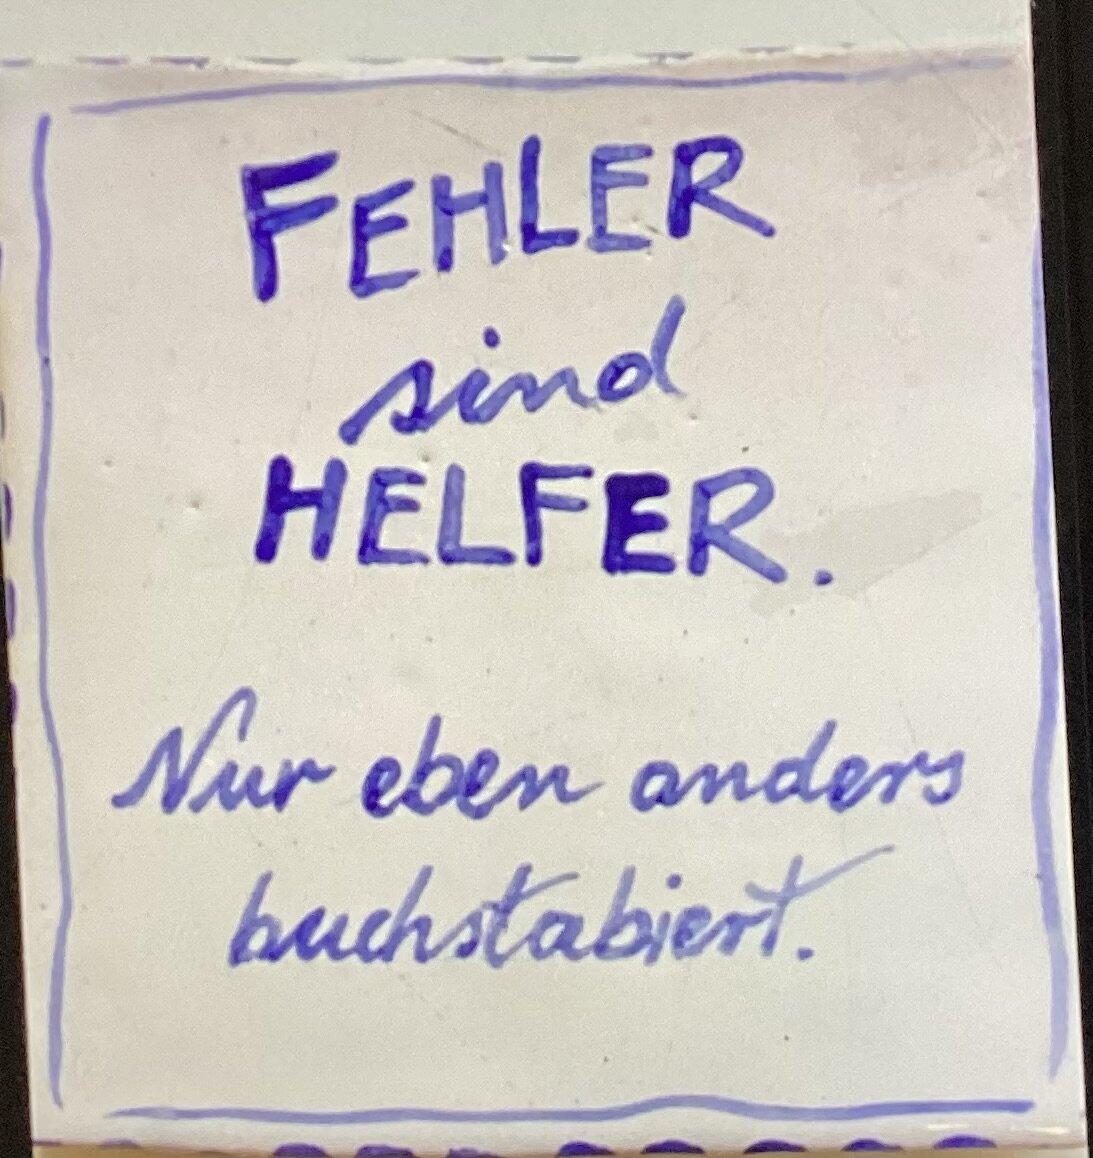 FEHLER
sind
HELFER.
Nur eben anders
buchstabiert.